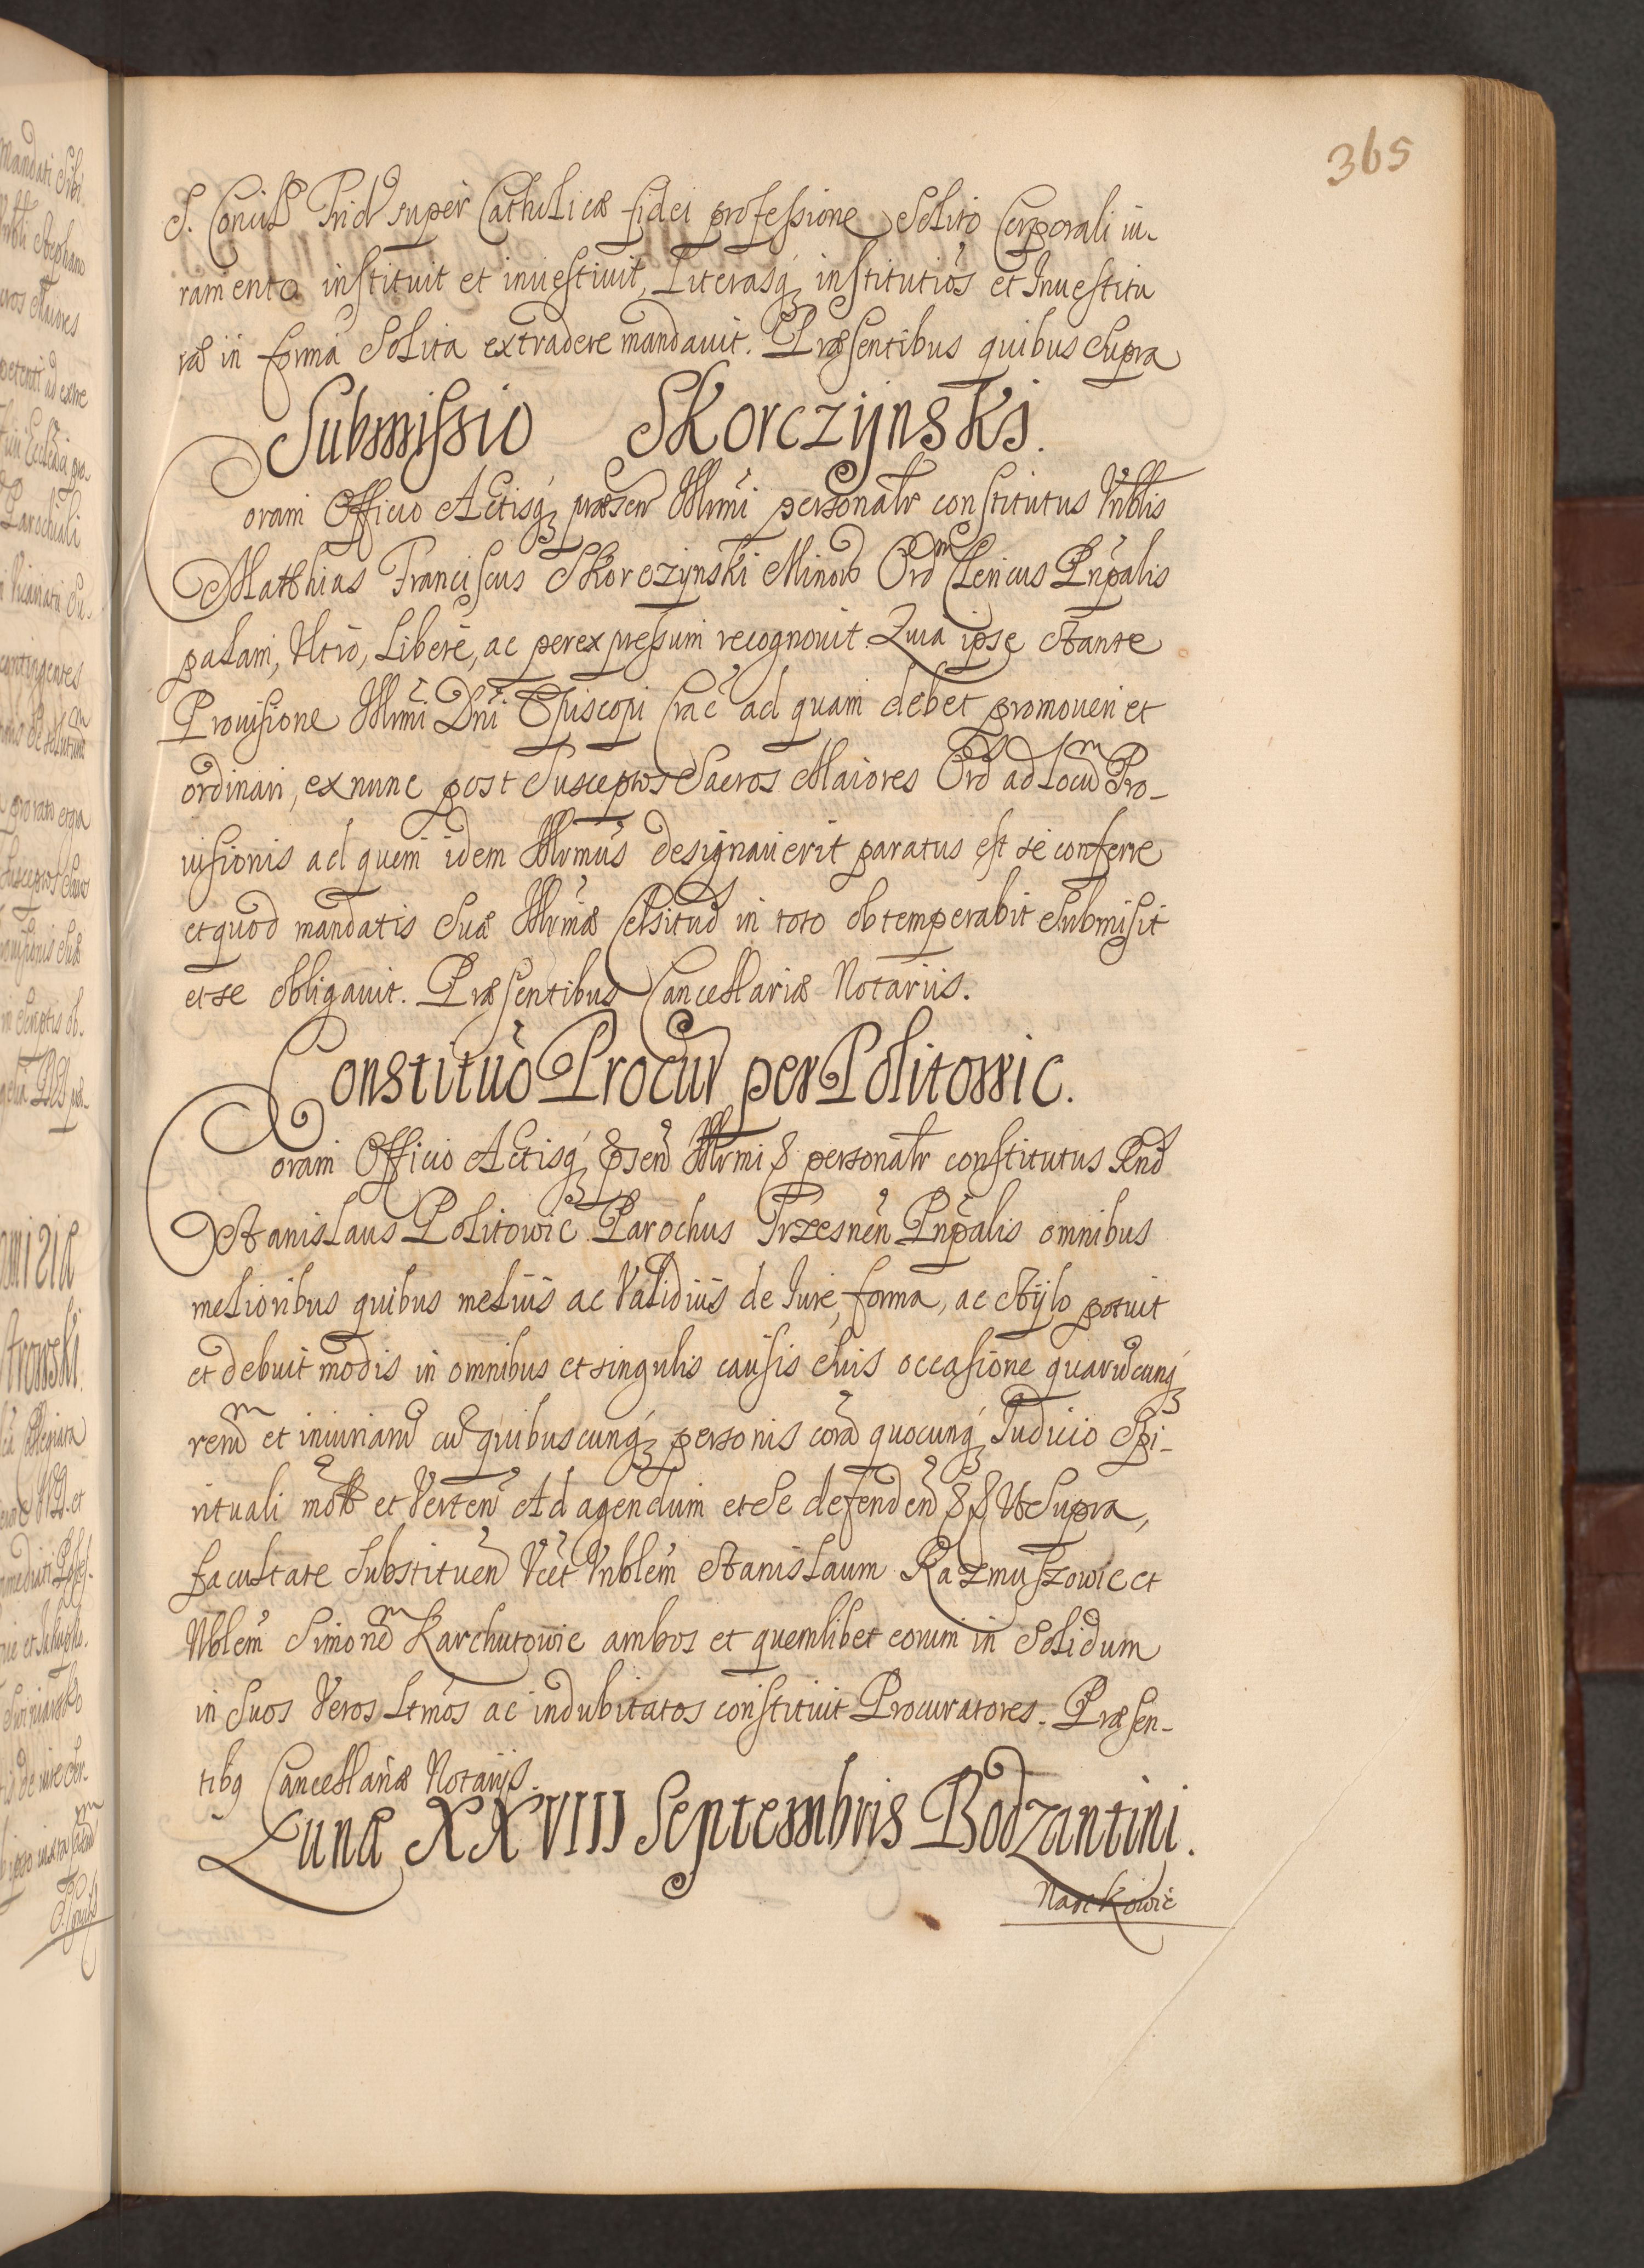 365
S. Concil Trid super Catholicæ fidei professione Solito Corporali iu-
ramento instituit et inuestiuit, Literasq institutiōs et Inuestitu
ræ in forma Solita extradere mandauit. Præsentibus quibus supra
Submissio Skorczijnski.
Coram Officio Actisq præsen Illrmi personalr constitutus Vnblis
Matthias Franciscus Skorczynski Minoru Ord Clericus Pnpalis
palam, Vltro, Libere, ac per expressum recognouit Quia ipse Stante
Prouisione Illrmi Dni Episcopi Crac ad quam debet promoueri et
ordinari, ex nunc post Susceptos Sacros Maiores Ord ad Locu Pro-
uisionis ad quem idem Illrmus designauerit paratus est se conferre
et quod mandatis Suæ Illrmæ Celsitud in toto obtemperabit Submisit
et se obligauit. Præsentibus Cancellariæ Notariis.
Constituō Procur per Politowic.
Coram Officio Actisq psen Illrmi & personalr constitutus Rnd
Stanislaus Politowic Parochus Trzesnen Pnpalis omnibus
melioribus quibus melius ac Validius de Iure, forma, ac Stylo potuit
et debuit modis in omnibus et singulis causis Suis occasione quarucunq
reru et iniuriaru cu quibuscunq personis cora quocunq Iudicio Spi-
rituali mot et Verten Ad agendum et Se defenden && Vt Supra,
facultate Substituen Vcet Vnblem Stanislaum Razmuszowic et
Nblem Simone Karchutowic ambos et quemlibet eorum in Solidum
in Suos Veros Ltmos ac indubitatos constituit Procuratores. Præsen-
tibq Cancellariæ Notarijs.
Lunæ XXVIII Septembris Bodzantini.
Narkowic